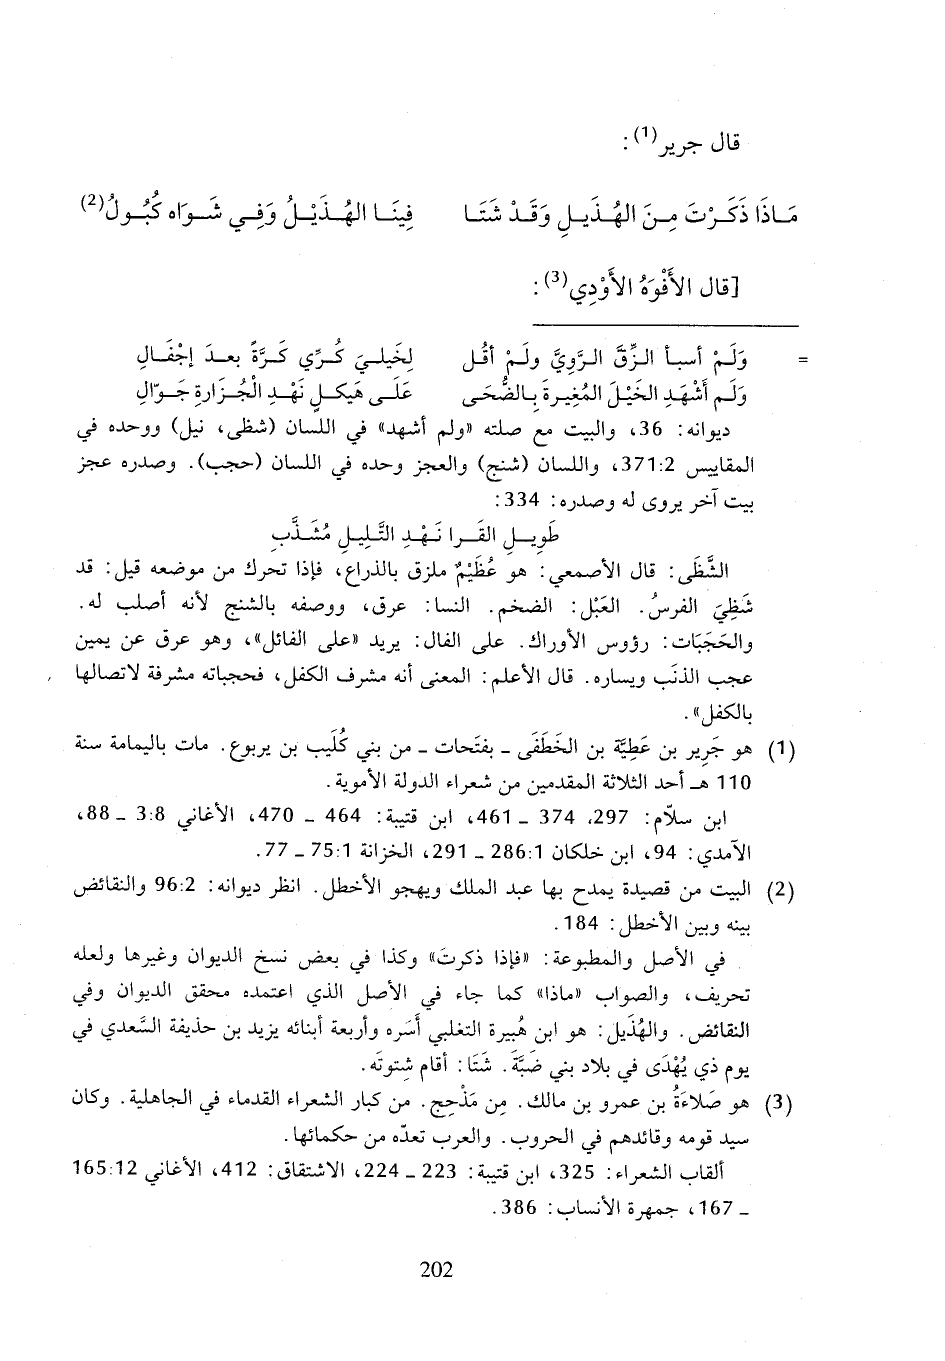 قال جرير(1):
مَاذَا ذَكَرْتَ مِنَ الهُذَيلِ وَقَدْ شَتَا فِينَا الهُذَيْلُ وَفِي شَوَاه كُبُولُ(2)
[قال الأَفْوَهُ الأَوْدِي(3):
= وَلَمْ أسبأ الزِّقَّ الرَّوِيَّ ولَمْ أقُل لِخَيْلِيَ كُرِّي كَرَّةً بعدَ إجْفَالِ
وَلَم أَشْهَدِ الخَيْلَ المُغِيرةَ بِالضُّحَى عَلَى هَيكلٍ نَهْدِ الْجُزَارةِ جَوّالِ
ديوانه: 36، والبيت مع صلته «ولم أشهد» في اللسان (شظى، نيل) ووحده في
المقاييس 371:2، واللسان (شنج) والعجز وحده في اللسان (حجب). وصدره عجز
بيت آخر يروى له وصدره: 334:
طَويلِ القَرا نَهْدِ التَّلِيلِ مُشَذَّبِ
الشَّظَى: قال الأصمعي: هو عُظَيْمٌ ملزق بالذراع، فإذا تحرك من موضعه قيل: قد
شَظِيَ الفرسُ. العَبْل: الضخم. النسا: عرق، ووصفه بالشنج لأنه أصلب له.
والحَجَبَات: رؤوس الأوراك. على الفال: يريد «على الفائل»، وهو عرق عن يمين
عجب الذنَب ويساره. قال الأعلم: المعنى أنه مشرف الكفل، فحجباته مشرفة لاتصالها
بالكفل».
(1) هو جَرِير بن عَطِيَّة بن الخَطَفَى - بفتحات - من بني كُلَيب بن يربوع. مات باليمامة سنة
110 هـ أحد الثلاثة المقدمين من شعراء الدولة الأموية.
ابن سلاّم: 297، 374 - 461، ابن قتيبة: 464 - 470، الأغاني 3:8 - 88،
الآمدي: 94، ابن خلكان 286:1 - 291، الخزانة 75:1 - 77.
(2) البيت من قصيدة يمدح بها عبد الملك ويهجو الأخطل. انظر ديوانه: 96:2 والنقائض
بينه وبين الأخطل: 184.
في الأصل والمطبوعة: «فإذا ذكرت» وكذا في بعض نسخ الديوان وغيرها ولعله
تحريف، والصواب «ماذا» كما جاء في الأصل الذي اعتمده محقق الديوان وفي
النقائض. والهُذَيل: هو ابن هُبيرة التغلبي أَسَره وأربعة أبنائه يزيد بن حذيفة السَّعدي في
يوم ذي يُهْدَى في بلاد بني ضَبَّة. شَتَا: أقام شتوتَه.
(3) هو صَلاءَةُ بن عمرو بن مالك. مِن مَذْحِج. من كبار الشعراء القدماء في الجاهلية. وكان
سيد قومه وقائدهم في الحروب. والعرب تعدّه من حكمائها.
ألقاب الشعراء: 325، ابن قتيبة: 223 - 224، الاشتقاق: 412، الأغاني 165:12
- 167، جمهرة الأنساب: 386.
202